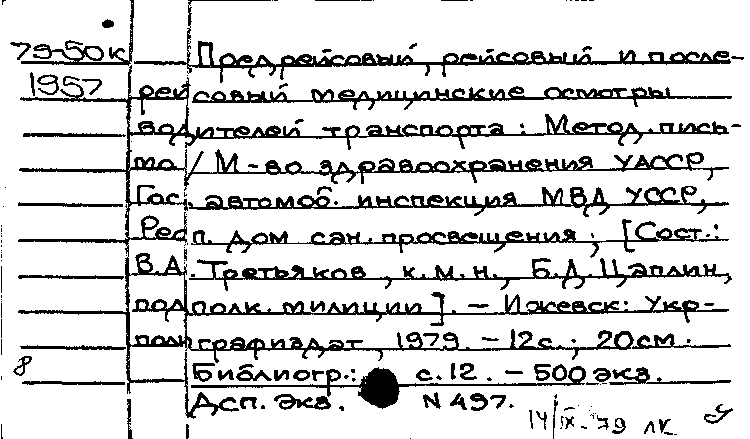 79-50к Предрейсовый, рейсовый и после-
1957 рейсовый медицинские осмотры
водителей транспорта: Метод. пись-
мо / М-во здравоохранения УАССР,
Гос. автомоб. инспекция МВД УССР,
Респ. дом сан. просвещения; [Сост.:
В.А. Третьяков, к.м.н., Б.Д. Цаплин,
подполк. милиции]. – Ижевск: Укр-
полиграфиздат, 1979. – 12с.; 20см.
8 Библиогр.: с.12. – 500 экз.
Дсп. Экз. N 497.
14/IX-79 лк